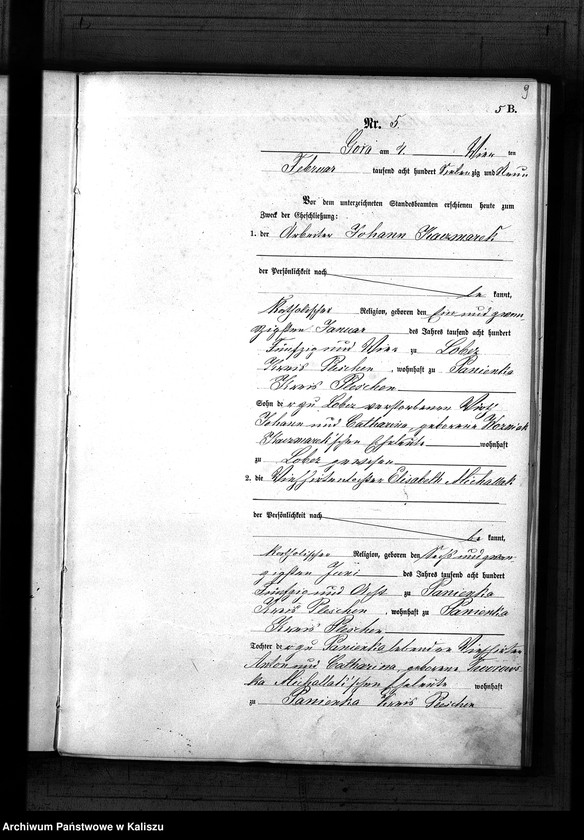 9
5 B.
Nr. 5.
Gora am 4. Vier ten
Februar tausend acht hundert Siebenzig und Neun
Vor dem unterzeichneten Standesbeamten erschienen heute zum
Zweck der Eheschließung:
1. der Arbeiter Johann Kaczmarek
der Persönlichkeit nach
be kannt,
katholischer Religion, geboren den Ein und zwan-
zigsten Januar des Jahres tausend acht hundert
Fünfzig und Vier zu Lobez
Kreis Pleschen, wohnhaft zu Panienka
Kreis Pleschen
Sohn der zu Lobez verstorbenen
Johann und Catharina, geborene
Kaczmarek'schen Eheleute wohnhaft
zu Lobez gewesen
2. die Viehhirtentochter Elisabeth Michallak
der Persönlichkeit nach
be kannt,
katholischer Religion, geboren den Sechs und zwan-
zigsten Juni des Jahres tausend acht hundert
Fünfzig und Acht zu Panienka
Kreis Pleschen, wohnhaft zu Panienka
Kreis Pleschen
Tochter der zu Panienka lebenden Viehhirten
Anton und Catharina, geborene
Michallak'schen Eheleute wohnhaft
zu Panienka Kreis Pleschen
Archiwum Państwowe w Kaliszu